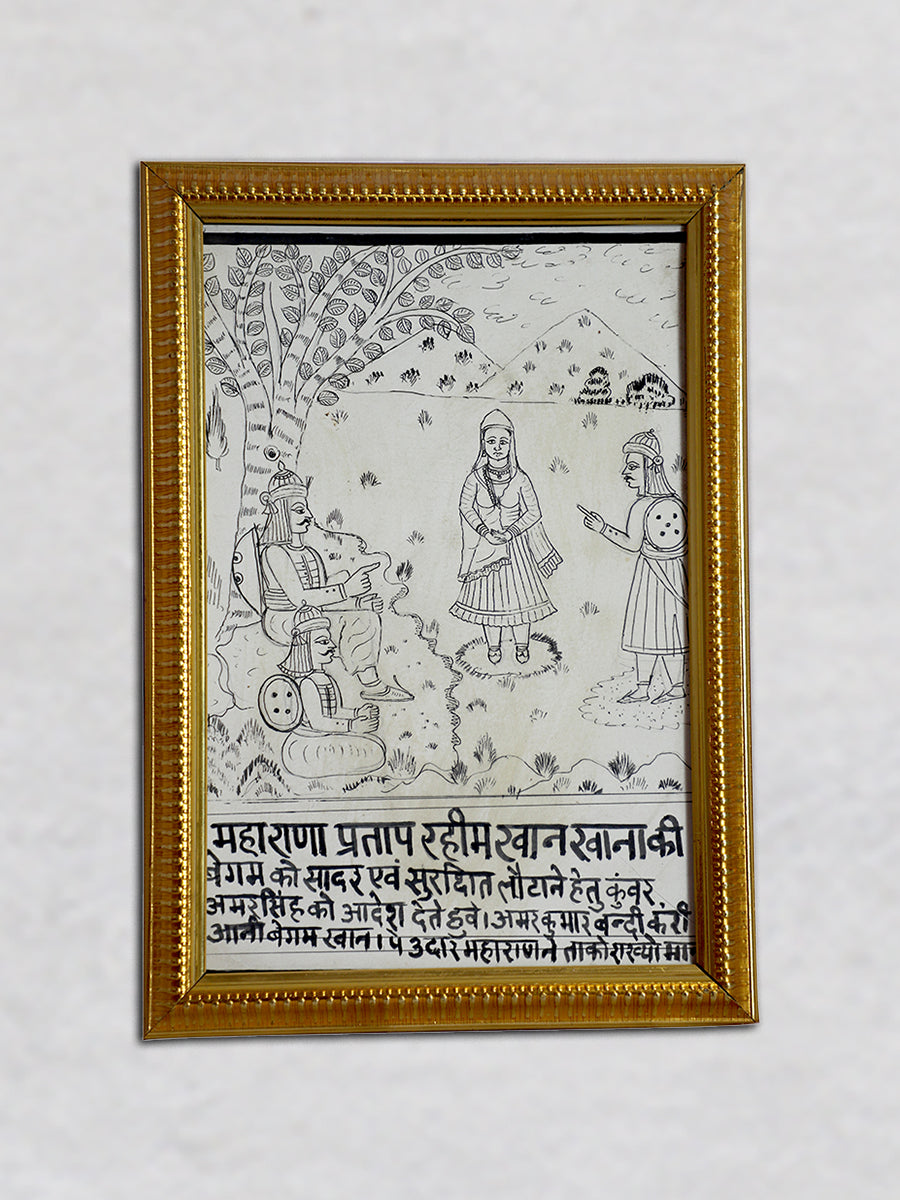 महाराणा प्रताप रहीम खान खाना की
बेगम को सादर एवं सुरक्षित लौटाने हेतु कुंवर
अमरसिंह को आदेश देते हुवे। अमरकुमार बन्दी करी
आनी बेगम खान। पे उदार महाराण ने ताको राख्यो